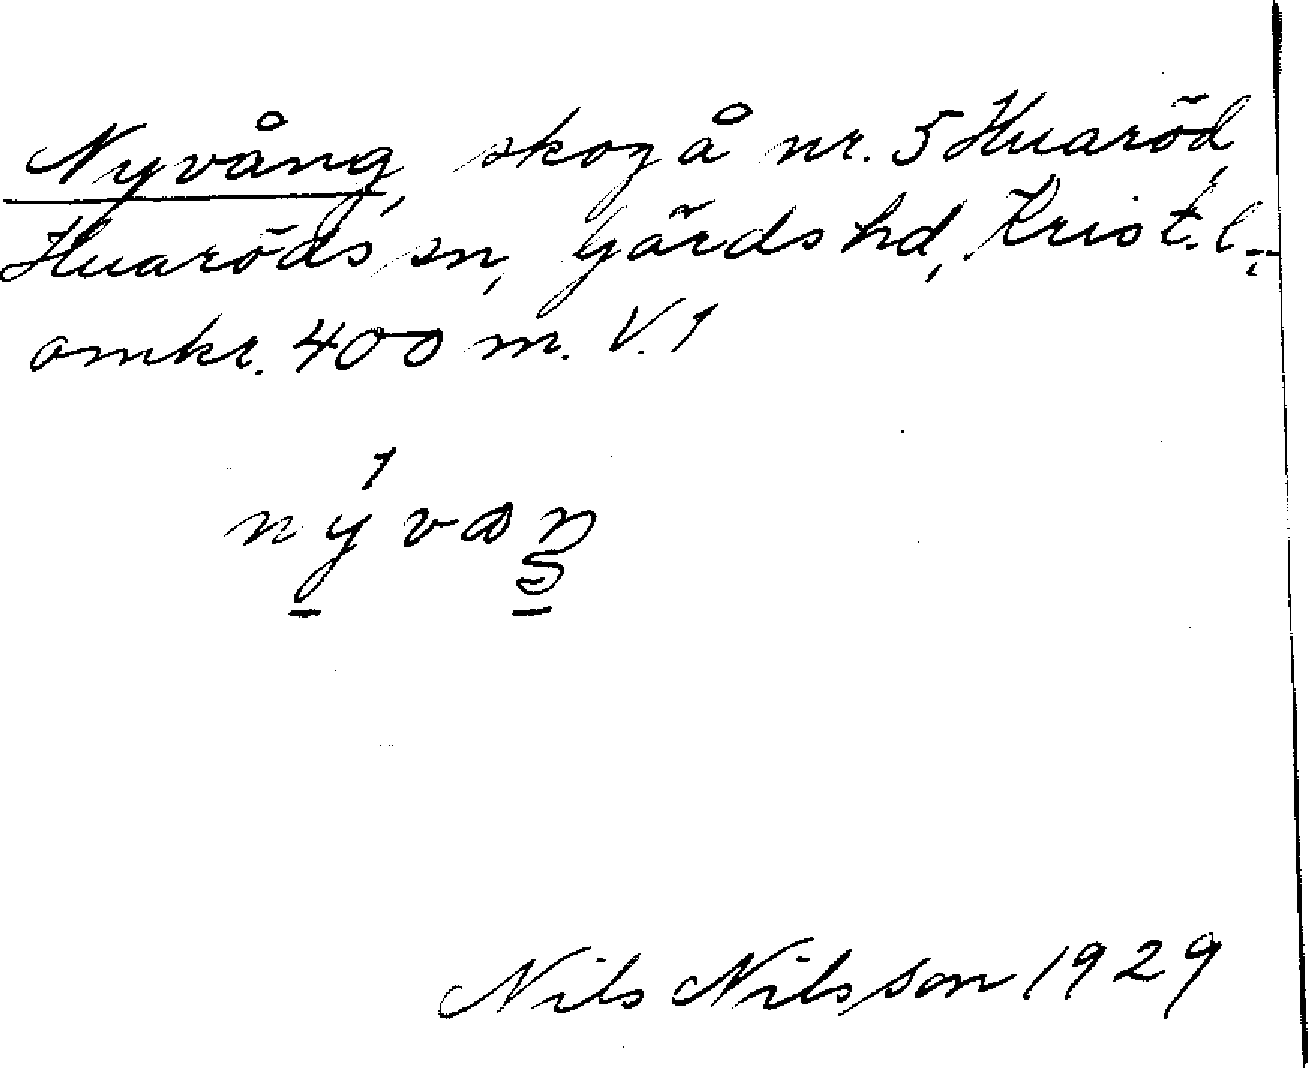 Nyvång, skog å nr. 5 Huaröd,
Huaröds sn, Gärds hd, Krist. l.,
omkr. 400 m. V. 1
Nils Nilsson 1929